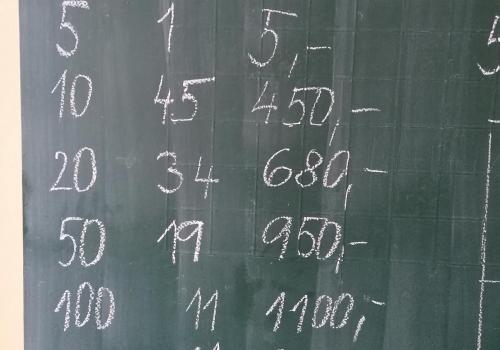 5 1 5,-
10 45 450,-
20 34 680,-
50 19 950,-
100 11 1100,-